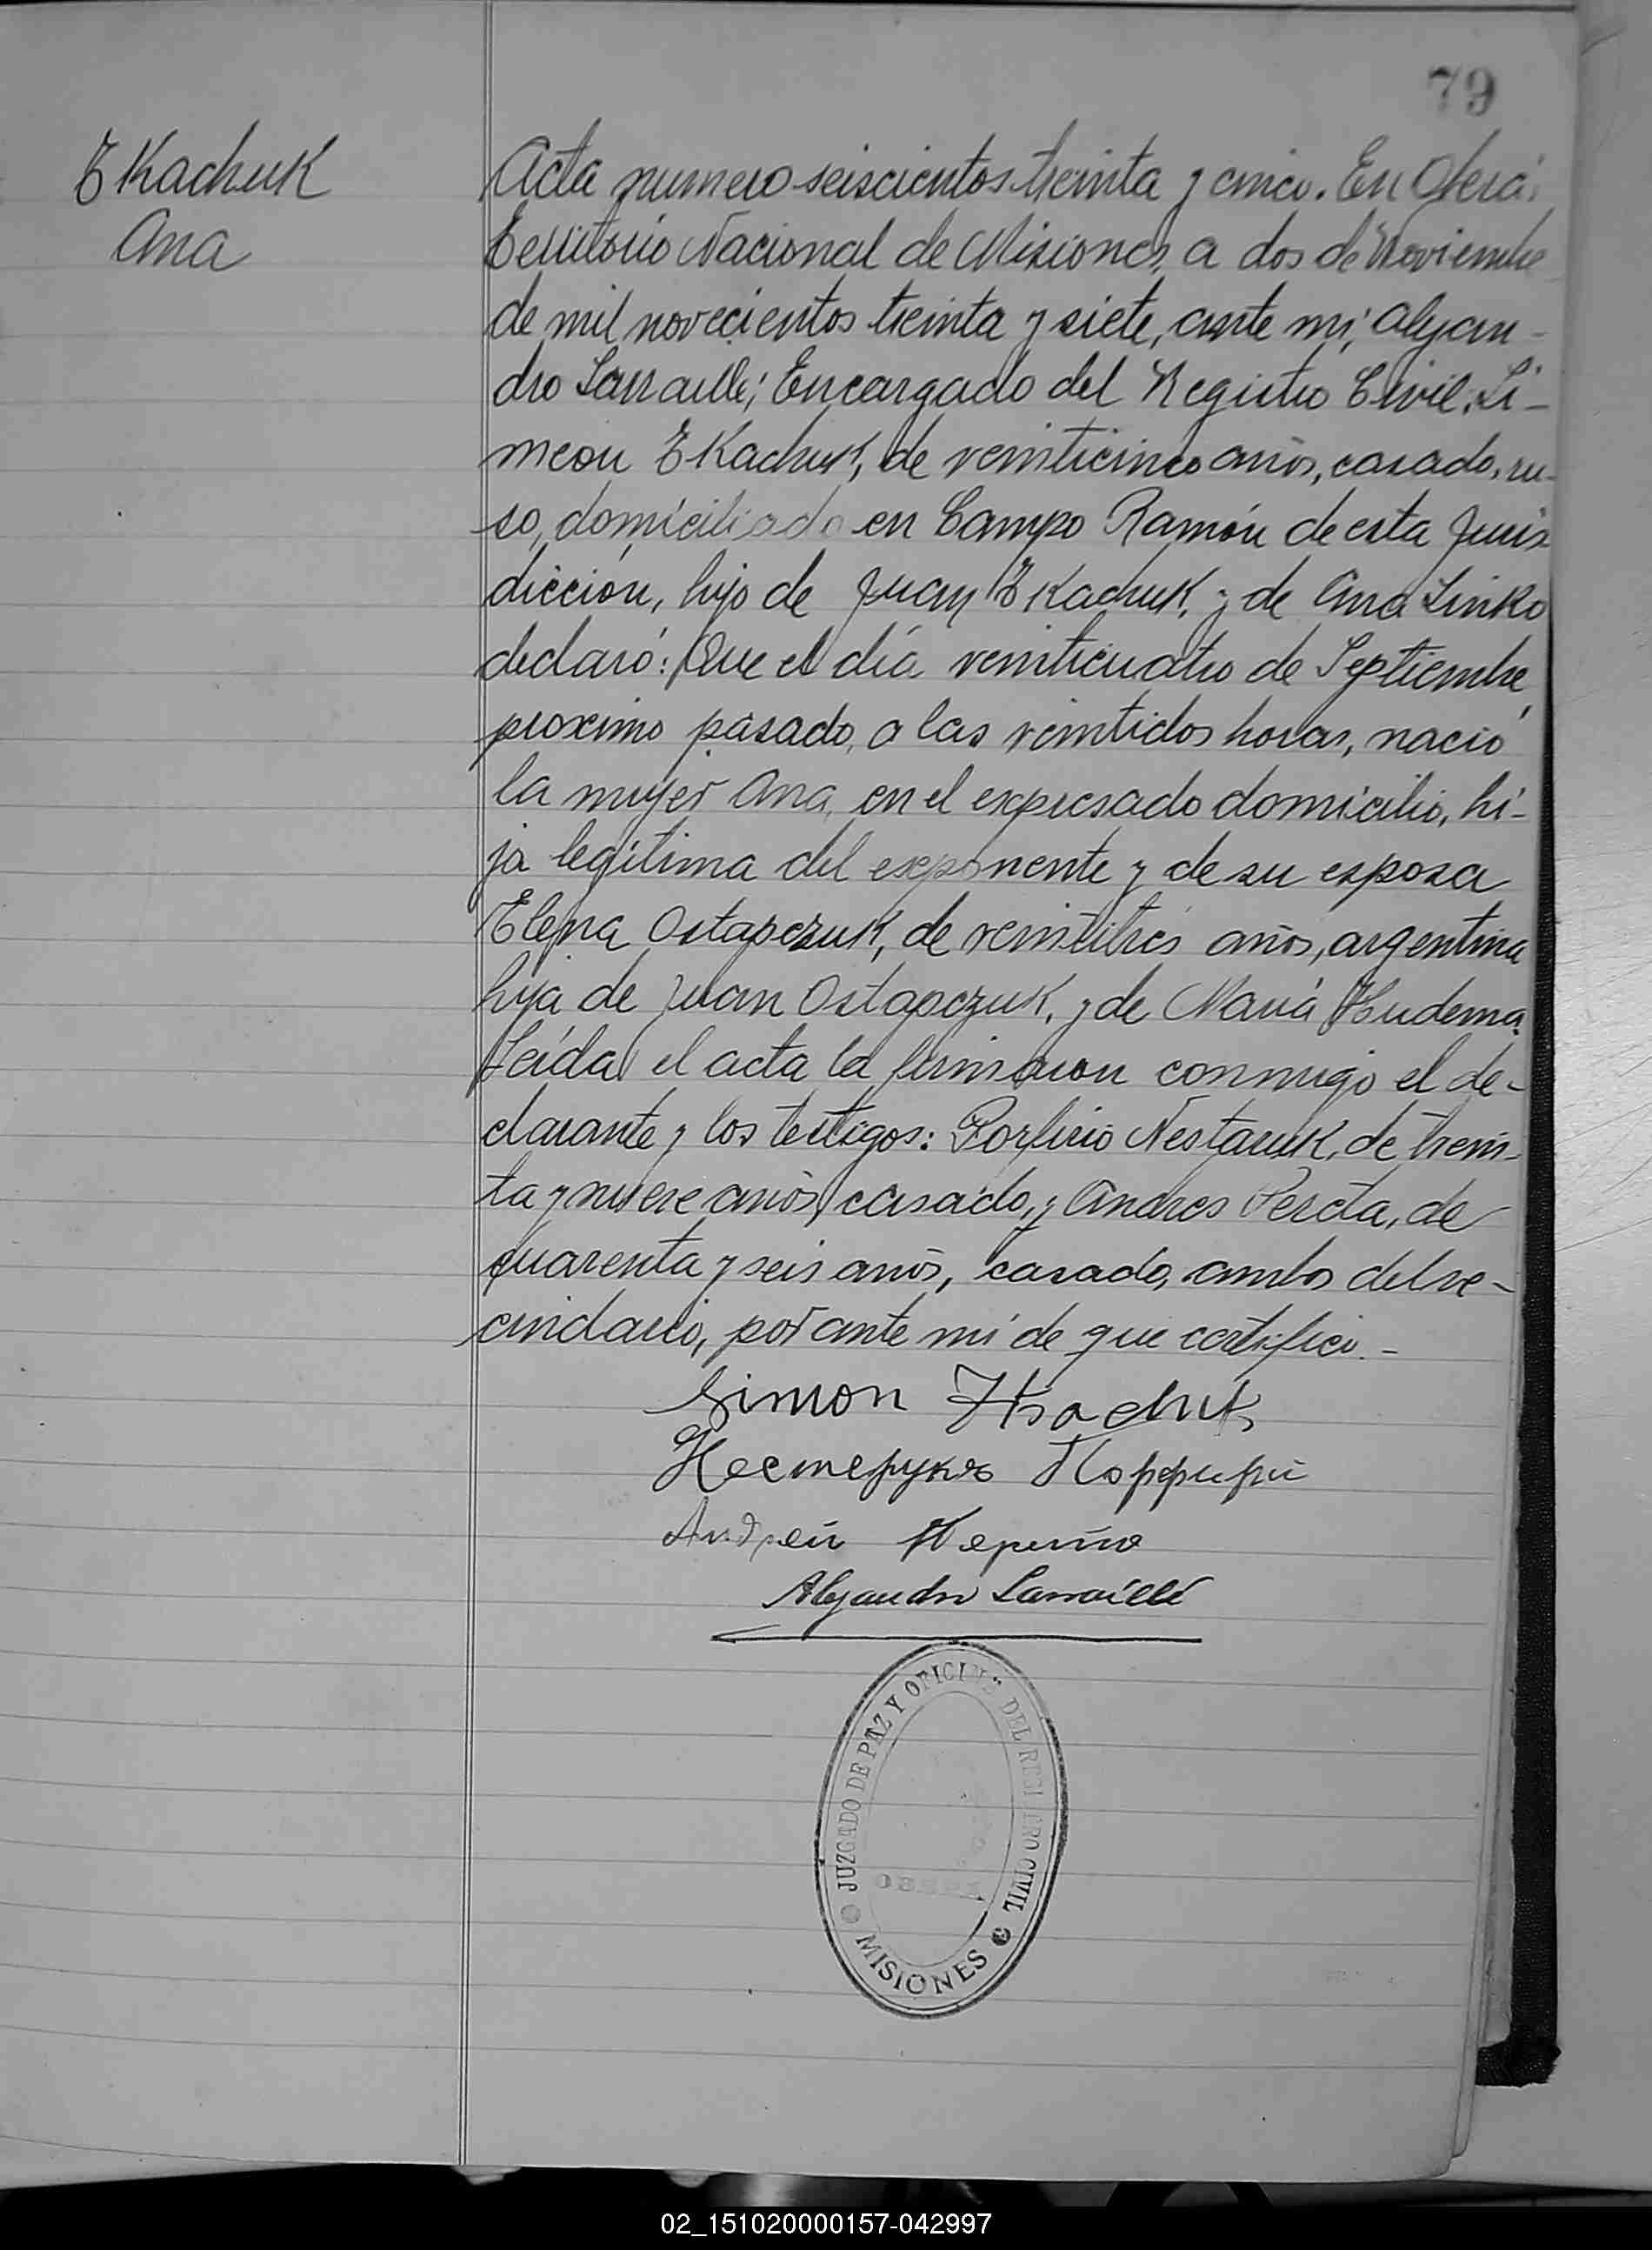 79
Tkachuk
Ana
Acta numero seiscientos treinta y cinco. En Oberá,
Territorio Nacional de Misiones, a dos de Noviembre
de mil novecientos treinta y siete, ante mi, Alejan-
dro Larraillé; Encargado del Registro Civil, Si-
meon Tkachuk, de veinticinco años, casado, ru-
so, domiciliado en Campo Ramón de esta Juris
dicción, hijo de Juan Tkachuk, y de Ana Linko
declaró: Que el día veinticuatro de Septiembre
proximo pasado, a las veintidos horas, nació
la mujer Ana, en el expresado domicilio, hi-
ja legítima del exponente y de su esposa
Elena Ostapczuk, de veintitrés años, argentina
hija de Juan Ostapczuk, y de María Hudema.
Leída el acta la firmaron conmigo el de-
clarante y los testigos: Porfirio Nestaruk, de trein-
ta y nueve años, casado, y Andres Pereta, de
cuarenta y seis años, casado, ambos del ve-
cindario, por ante mí de que certifico.-
Simon Tkachuk
Нестерукъ Порфири
Андрей
Alejandro Larraillé
JUZGADO DE PAZ Y OFICINA DEL REGISTRO CIVIL
MISIONES
02_151020000157-042997